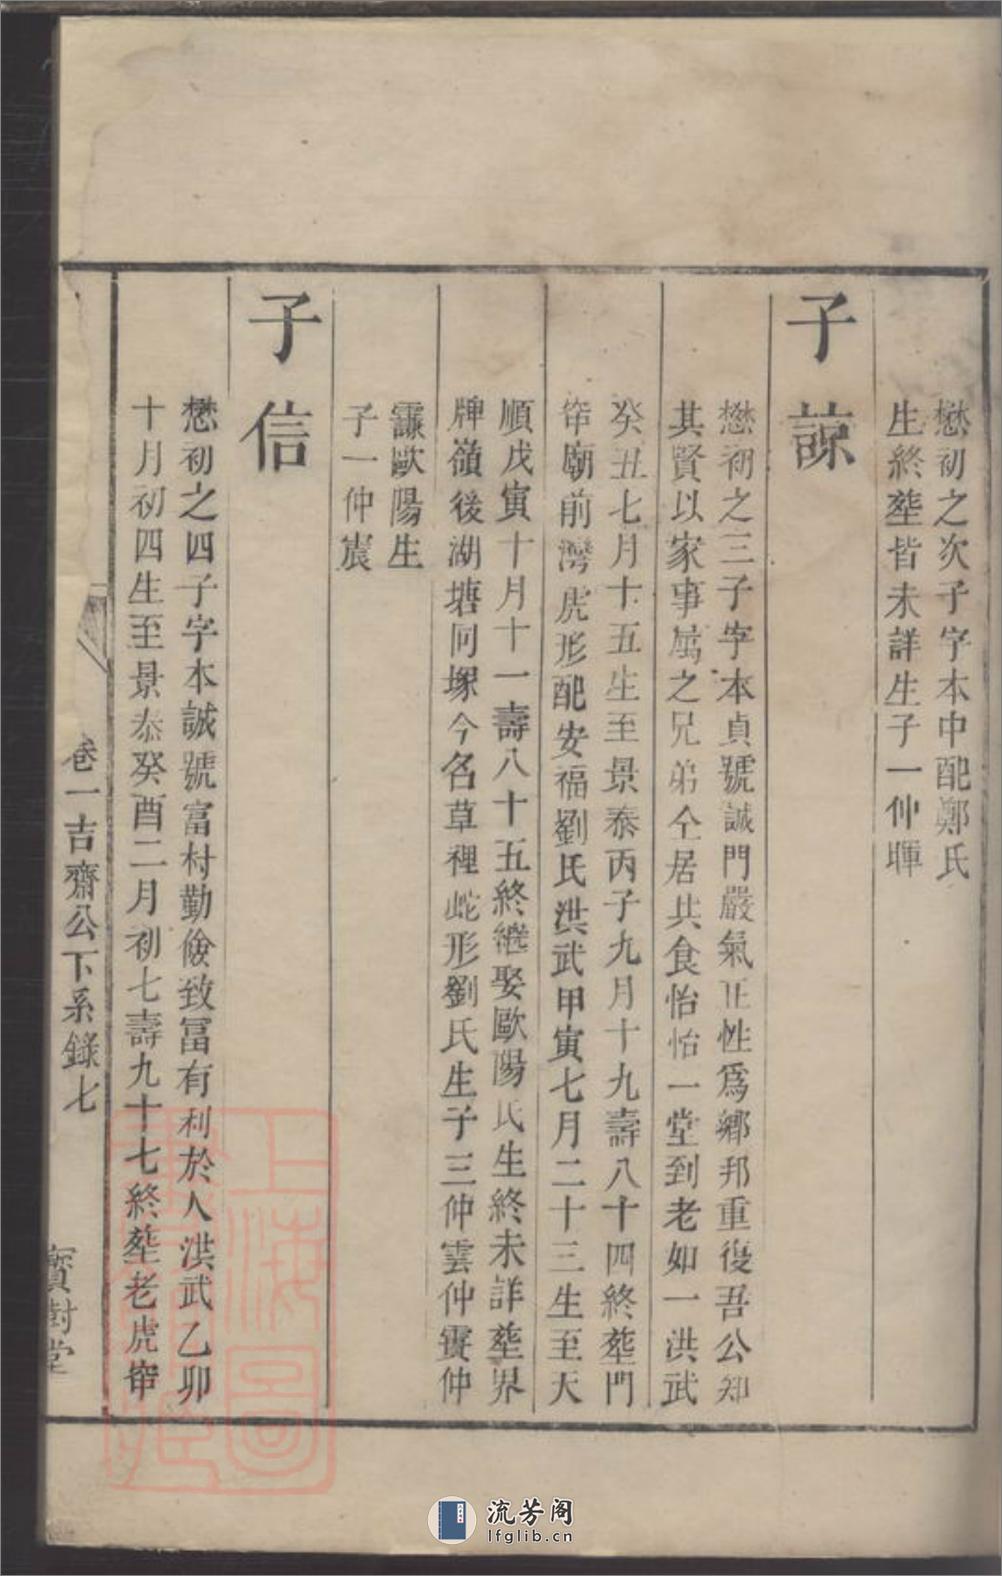 懋初之次子字本中配鄭氏
生終塟皆未詳生子一仲暉
子諒
懋初之三子字本貞號誠門嚴氣正性爲鄉邦重復吾公知
其賢以家事属之兄弟仝居共食怡怡一堂到老如一洪武
癸丑七月十五生至景泰丙子九月十九壽八十四終塟門
帘廟前灣虎形配安福劉氏洪武甲寅七月二十三生至天
順戊寅十月十一壽八十五終繼娶歐陽氏生終未詳塟界
牌嶺後湖塘同塚今名草裡蛇形劉氏生子三仲雲仲霙仲
歐陽生
子一仲宸
子信
懋初之四子字本誠號富村勤儉致冨有利於人洪武乙卯
十月初四生至景泰癸酉二月初七壽九十七終塟老虎帘
卷一吉齋公下系錄七
寶樹堂
上海圖書館藏
流芳阁
lfglib.cn